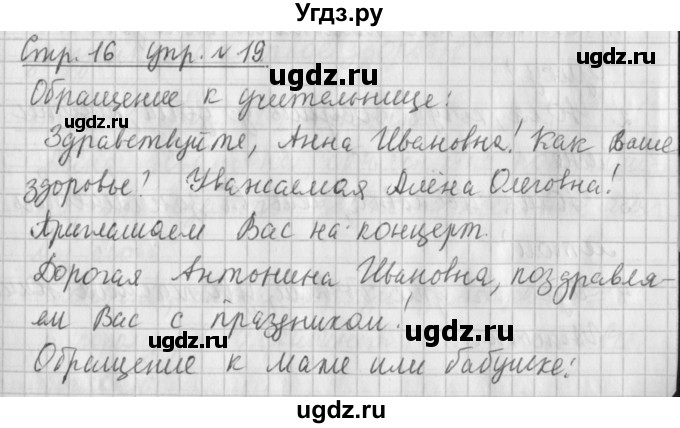 Угдз.ру
Стр. 16 упр. № 19
угдз.ru
угдз.ru
Обращение к учительнице:
угдз.ru
Здравствуйте, Анна Ивановна! Как Ваше
здоровье? Уважаемая Алёна Олеговна!
Приглашаем Вас на концерт.
Дорогая Антонина Ивановна, поздравля-
ем Вас с праздником!
угдз.ru
угдз.ru
Обращение к маме или бабушке:
угдз.ru